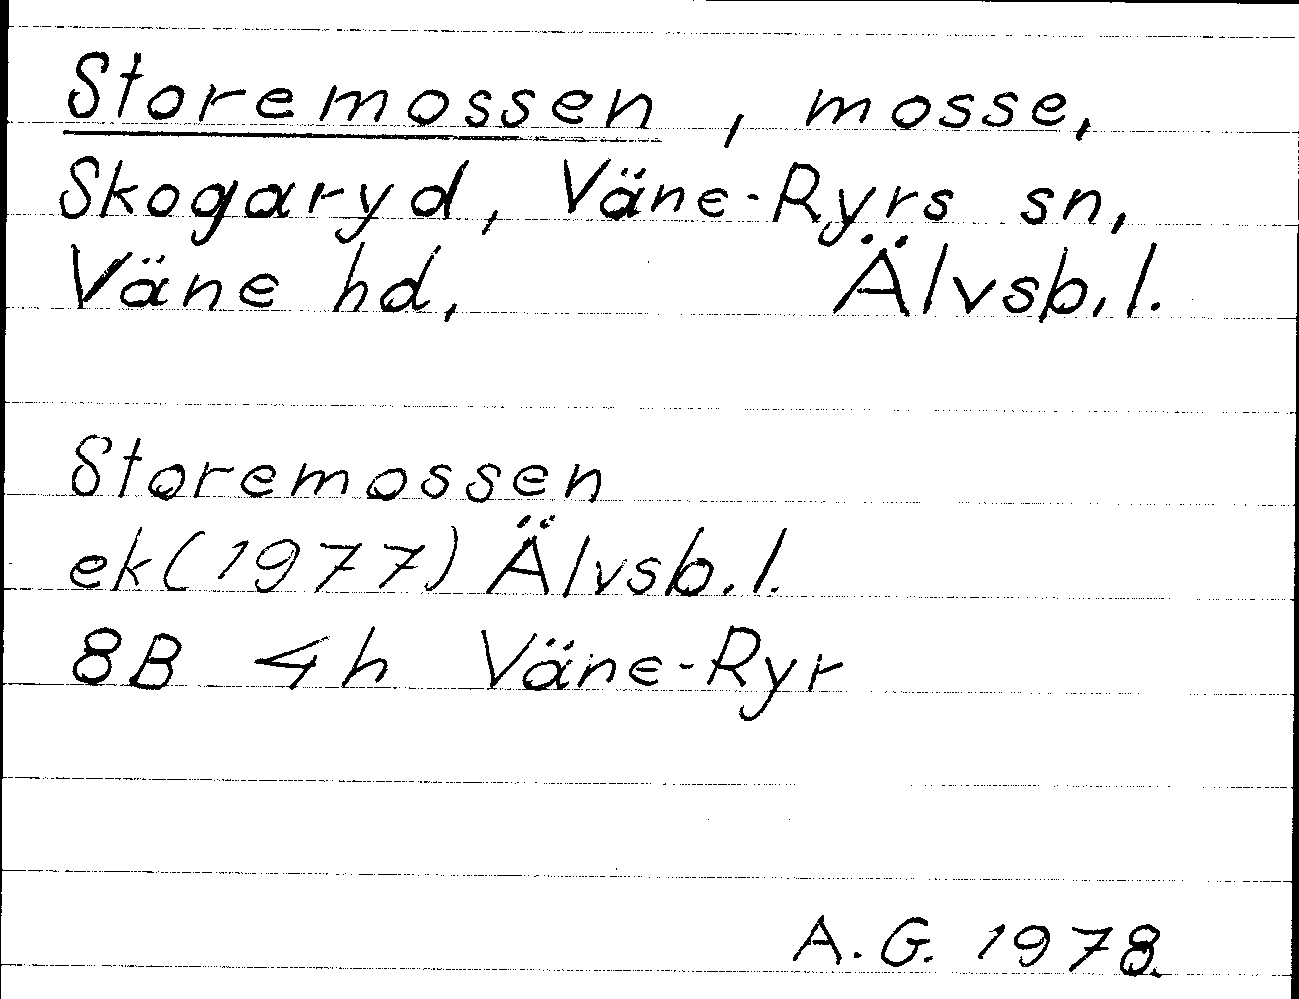 Storemossen, mosse,
Skogaryd, Väne-Ryrs sn,
Väne hd, Älvsb.l.
Storemossen
ek(1977) Älvsb.l.
8B 4h Väne-Ryr
A.G. 1978.